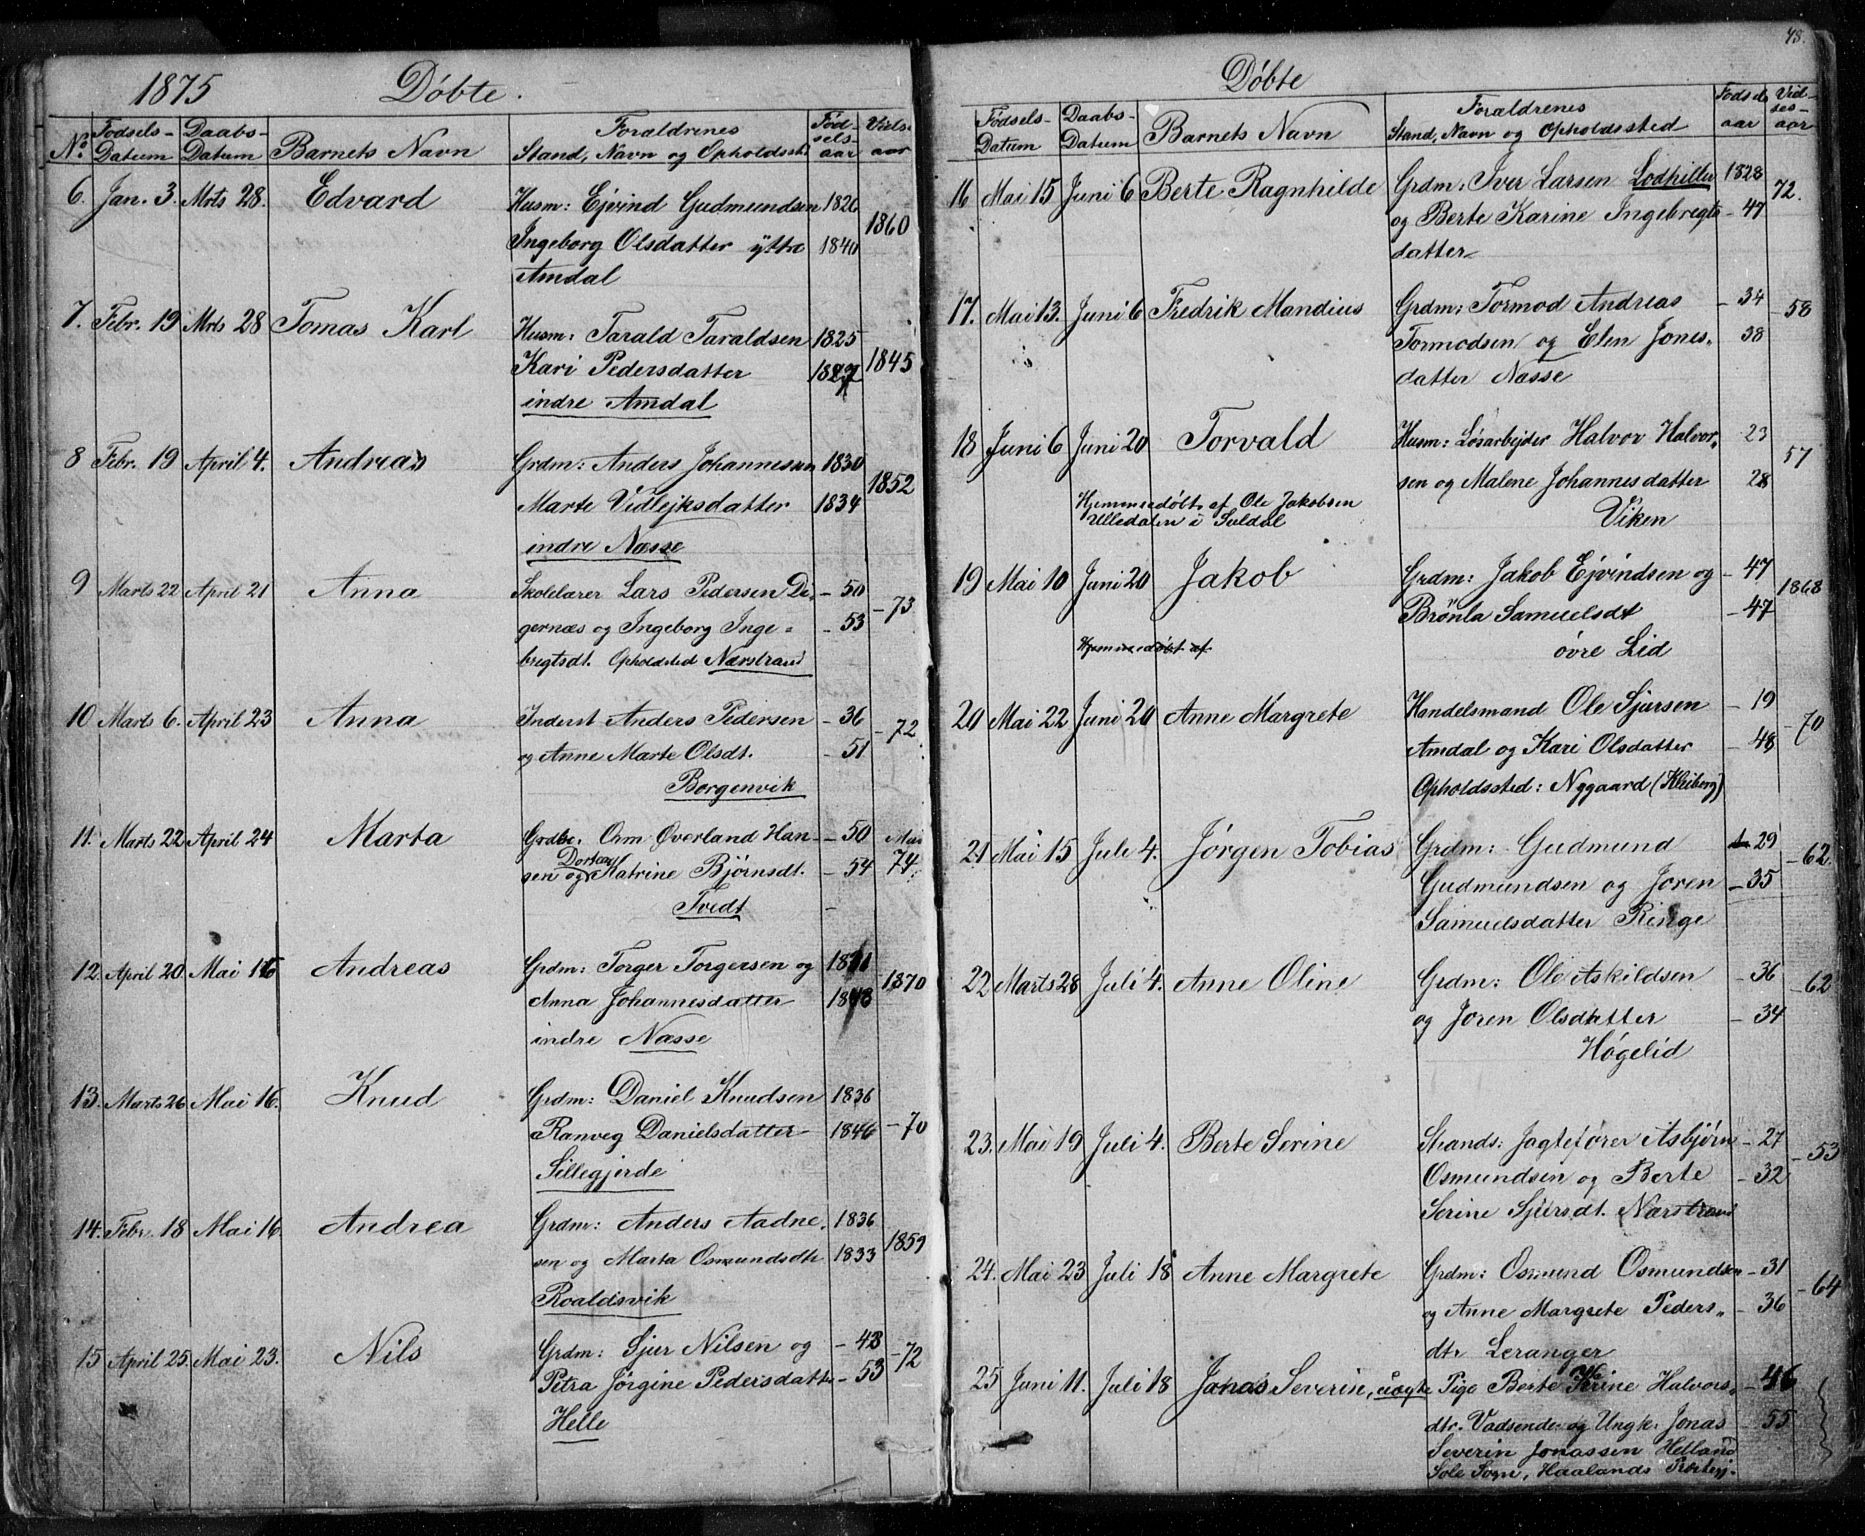 1875 Döbte.
No Fodsels-Datum Daabs-Datum Barnets Navn Foraldrenes Stand, Navn og Opholdsst Föd-sels-aar Viels-aar
6. Jan. 3. Mrts 28. Edvard Husm: Ejvind Gudmundsen 1826 1860
Ingeborg Olsdatter ÿttre 1840
Amdal
7. Febr. 19 Mrts 28 Tomas Karl Husm: Tarald Taraldsen 1825 1845
Kari Pedersdatter
indre Amdal
8 Febr. 19 April 4. Andreas Grdm: Anders Johannessen 1830 1852
Marte Vidlejksdatter 1834
indre Næsse
9 Marts 22 April 21 Anna Skolelærer Lars Pedersen Di- - 50 - 73
gernæs og Ingeborg Inge= - 53
bregtsdt. Opholdsted Nærstrand
10 Marts 6. April 23 Anna Inderst Anders Pedersen - 36 - 72
og Anne Marte Olsdt. - 51
Borgenvik
11. Marts 22 April 24 Marta Grdbr: Orm Øverland Han- - 50
Dortea
sen og Katrine Björnsdt. - 54 74.
Tvedt -
12. April 20 Mai 16 Andreas Grdm: Torger Torgersen og 1870
Anna Johannesdatter
indre Næsse
13. Marts 26 Mai 16. Knud Grdm: Daniel Knudsen 1836 - 70
Ranveg Danielsdatter 1846
Sillegjerde
14. Febr. 18 Mai 16. Andrea Grdm: Anders Aadne- 1836 1859
sen og Marta Osmundsdtr 1833
Roaldsvik
15 April 25. Mai 23. Nils Grdm: Sjur Nilsen og - 48 - 72
Petra Jörgine Pedersdattr - 53
Helle
48.
Döbte
Födsels-Datum Daabs-Datum Barnets Navn Foraldrenes Stand, Navn og Opholdssted Fodsels aar Viel-ses-aar
16 Mai 15 Juni 6 Berte Ragnhilde Grdm: Iver Larsen Lodhiller 1828 72.
og Berte Karine Ingebregts - 47
datter
17. Mai 13. Juni 6 Fredrik Mandius Grdm: Tormod Andreas - 34 - 58
Tormodsen og Elen Jones- 38
datter Næsse
18 Juni 6 Juni 20 Torvald Husm: Lösarbejder Halvor Halvor- 23 57
sen og Malene Johannesdatter 28
Hjemmedöbt af Ole Jakobsen
Ulledalen i Suldal
Viken
19 Mai 10 Juni 20 Jakob Grdm: Jakob Ejvindsen og - 47 1868
Brönla Samuelsdt - 47
Hjemmedöbt af
övre Lid
20 Mai 22 Juni 20 Anne Margrete Handelsmand Ole Sjursen - 19 - 70
Amdal og Kari Olsdatter - 48
Opholdssted: Nygaard (Kleiberg)
21 Mai 15 Juli 4. Jörgen Tobias Grdm: Gudmund 29 - 62.
Gudmundsen og Joren - 35
Samuelsdatter Ringe
22 Marts 28 Juli 4. Anne Oline Grdm: Ole Askildsen - 36 - 62
og Joren Olsdatter - 34
Högelid
23. Mai 19 Juli 4. Berte Serine Strands: Jagteförer Asbjörn - 27 - 53
Osmundsen og Berte - 32
Serine Sjursdt. Nærstrand
24. Mai 23 Juli 18 Anne Margrete Grdm: Osmund Osmundsen - 31 - 64
og Anne Margrete Peders- - 36
dtr Leranger
25 Juni 11. Juli 18 Jonas Severin, uægte Pige Berte Halvors- - 46
dtr. Vadsende og Ungk. Jonas - 55
Severin Jonassen Helland
Sole Sogn, Haalands Præstegj.